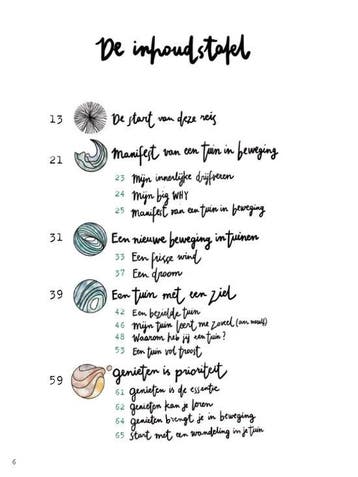 De inhoudstafel
13 De start van deze reis
21 Manifest van een tuin in beweging
23 Mijn innerlijke drijfveren
24 Mijn big WHY
25 Manifest van een tuin in beweging
31 Een nieuwe beweging in tuinen
33 Een frisse wind
37 Een droom
39 Een tuin met een ziel
42 Een bezielde tuin
46 Mijn tuin leert me zoveel
48 Waarom heb jij een tuin?
53 Een tuin vol troost
59 genieten is prioriteit
61 genieten is de essentie
62 genieten kan je leren
64 genieten brengt je in beweging
65 Start met een wandeling in je tuin
6